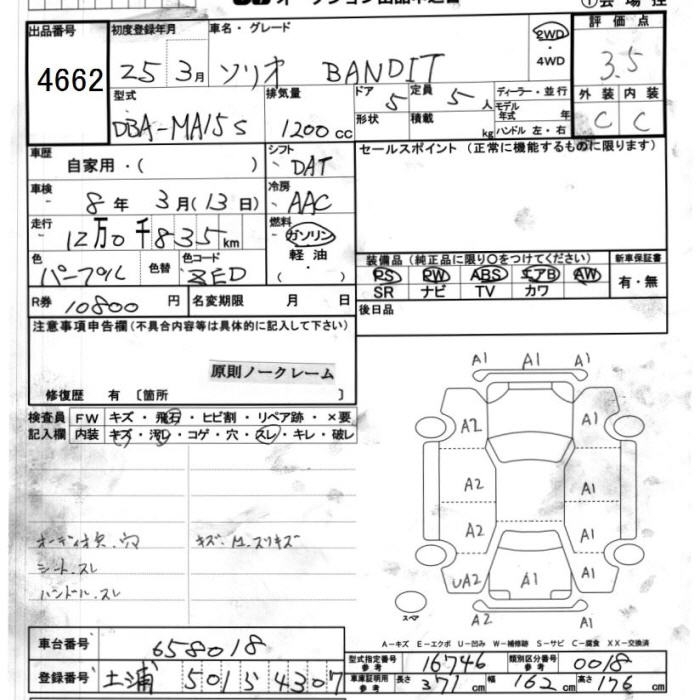 出品番号 4662
初度登録年月 25 3月
車名・グレード ソリオ BANDIT
2WD ・4WD
評価点 3.5
型式 DBA-MA15S
排気量 1200cc
ドア 5
定員 5人
形状
積載 kg
ディーラー・並行
モデル年式 年
ハンドル 左・右
外装 内装
C C
車歴 自家用・( )
シフト DAT
セールスポイント(正常に機能するものに限ります)
車検 8年 3月(13日)
冷房 AAC
走行 12万0千835km
燃料 ガソリン
軽油
・( )
色 パープル 色替 色コード ZED
装備品(純正品に限り○をつけてください)
新車保証書
PS PW ABS エアB AW
SR ナビ TV カワ
有・無
R券 10800円 名変期限 月 日
後日品
注意事項申告欄(不具合内容等は具体的に記入して下さい)
原則ノークレーム
修復歴 有〔箇所 〕
検査員 FW キズ・飛石・ヒビ割・リペア跡・×要
記入欄 内装 キズ・汚レ・コゲ・穴・スレ・キレ・破レ
A1 A1 A1
A2 A1
A2 A1
A2 A1
UA2 A1 A1
A2 A1
スペア
オーディオ欠.穴 キズ.M.スリキズ
シート.スレ
ハンドル.スレ
A-キズ E-エクボ U-凹み W-補修跡 S-サビ C-腐食 XX-交換済
車台番号 658018
型式指定番号 参考 16746 類別区分番号 参考 0018
登録番号 土浦 501 ら 4307
車庫証明用 参考 長さ 371cm 幅 162cm 高さ 176cm